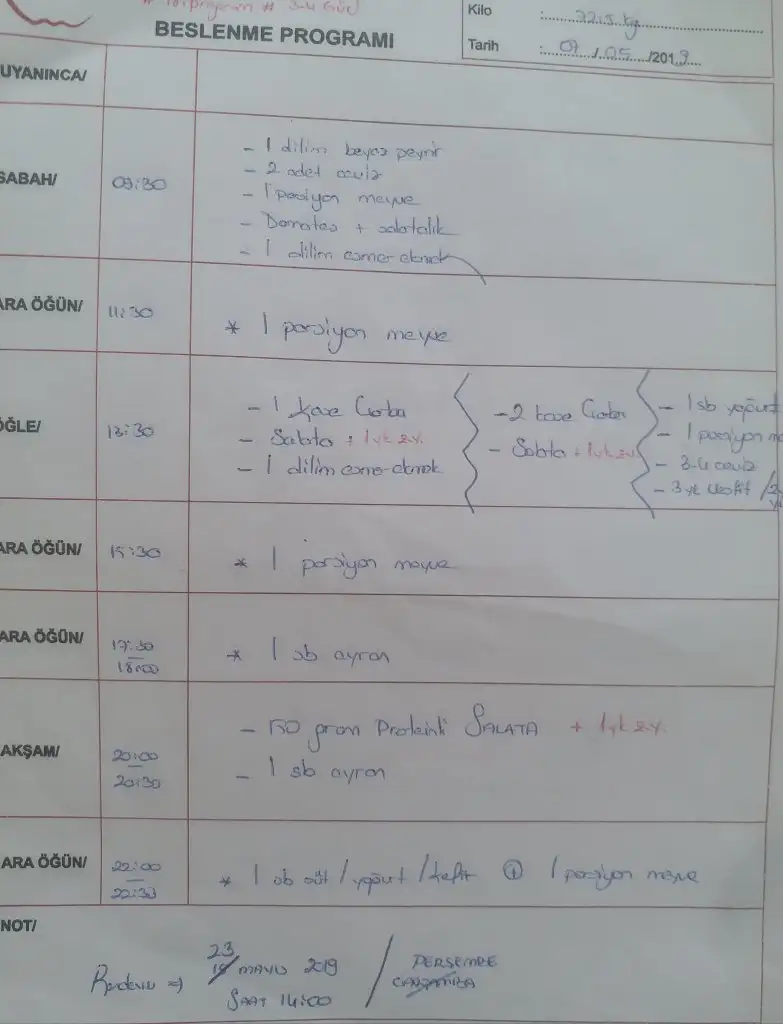 3-4 Gün
Kilo : 72.5 kg
BESLENME PROGRAMI
Tarih : 07/05/2019
UYANINCA/
SABAH/ 09:30
- 1 dilim beyaz peynir
- 2 adet ceviz
- 1 porsiyon meyve
- Domates + salatalık
- 1 dilim esmer ekmek
ARA ÖĞÜN/ 11:30 * 1 porsiyon meyve
ÖĞLE/ 13:30
- 1 kase Çorba
- Salata + 1 yk z.y.
- 1 dilim esmer ekmek
- 2 kase Çorba
- Salata + 1 yk z.y.
- 1 sb yoğurt
- 1 porsiyon
- 3-4 ceviz
- 3 yk
ARA ÖĞÜN/ 15:30 * 1 porsiyon meyve
ARA ÖĞÜN/ 17:30 18:00 * 1 sb ayran
AKŞAM/ 20:00 20:30
- 150 gram Proteinli SALATA + 1 yk z.y.
- 1 sb ayran
ARA ÖĞÜN/ 22:00 22:30 * 1 sb süt / yoğurt / kefir + 1 porsiyon meyve
NOT/
Randevu => 23 MAYIS 2019 / PERŞEMBE
ÇARŞAMBA
SAAT 14:00